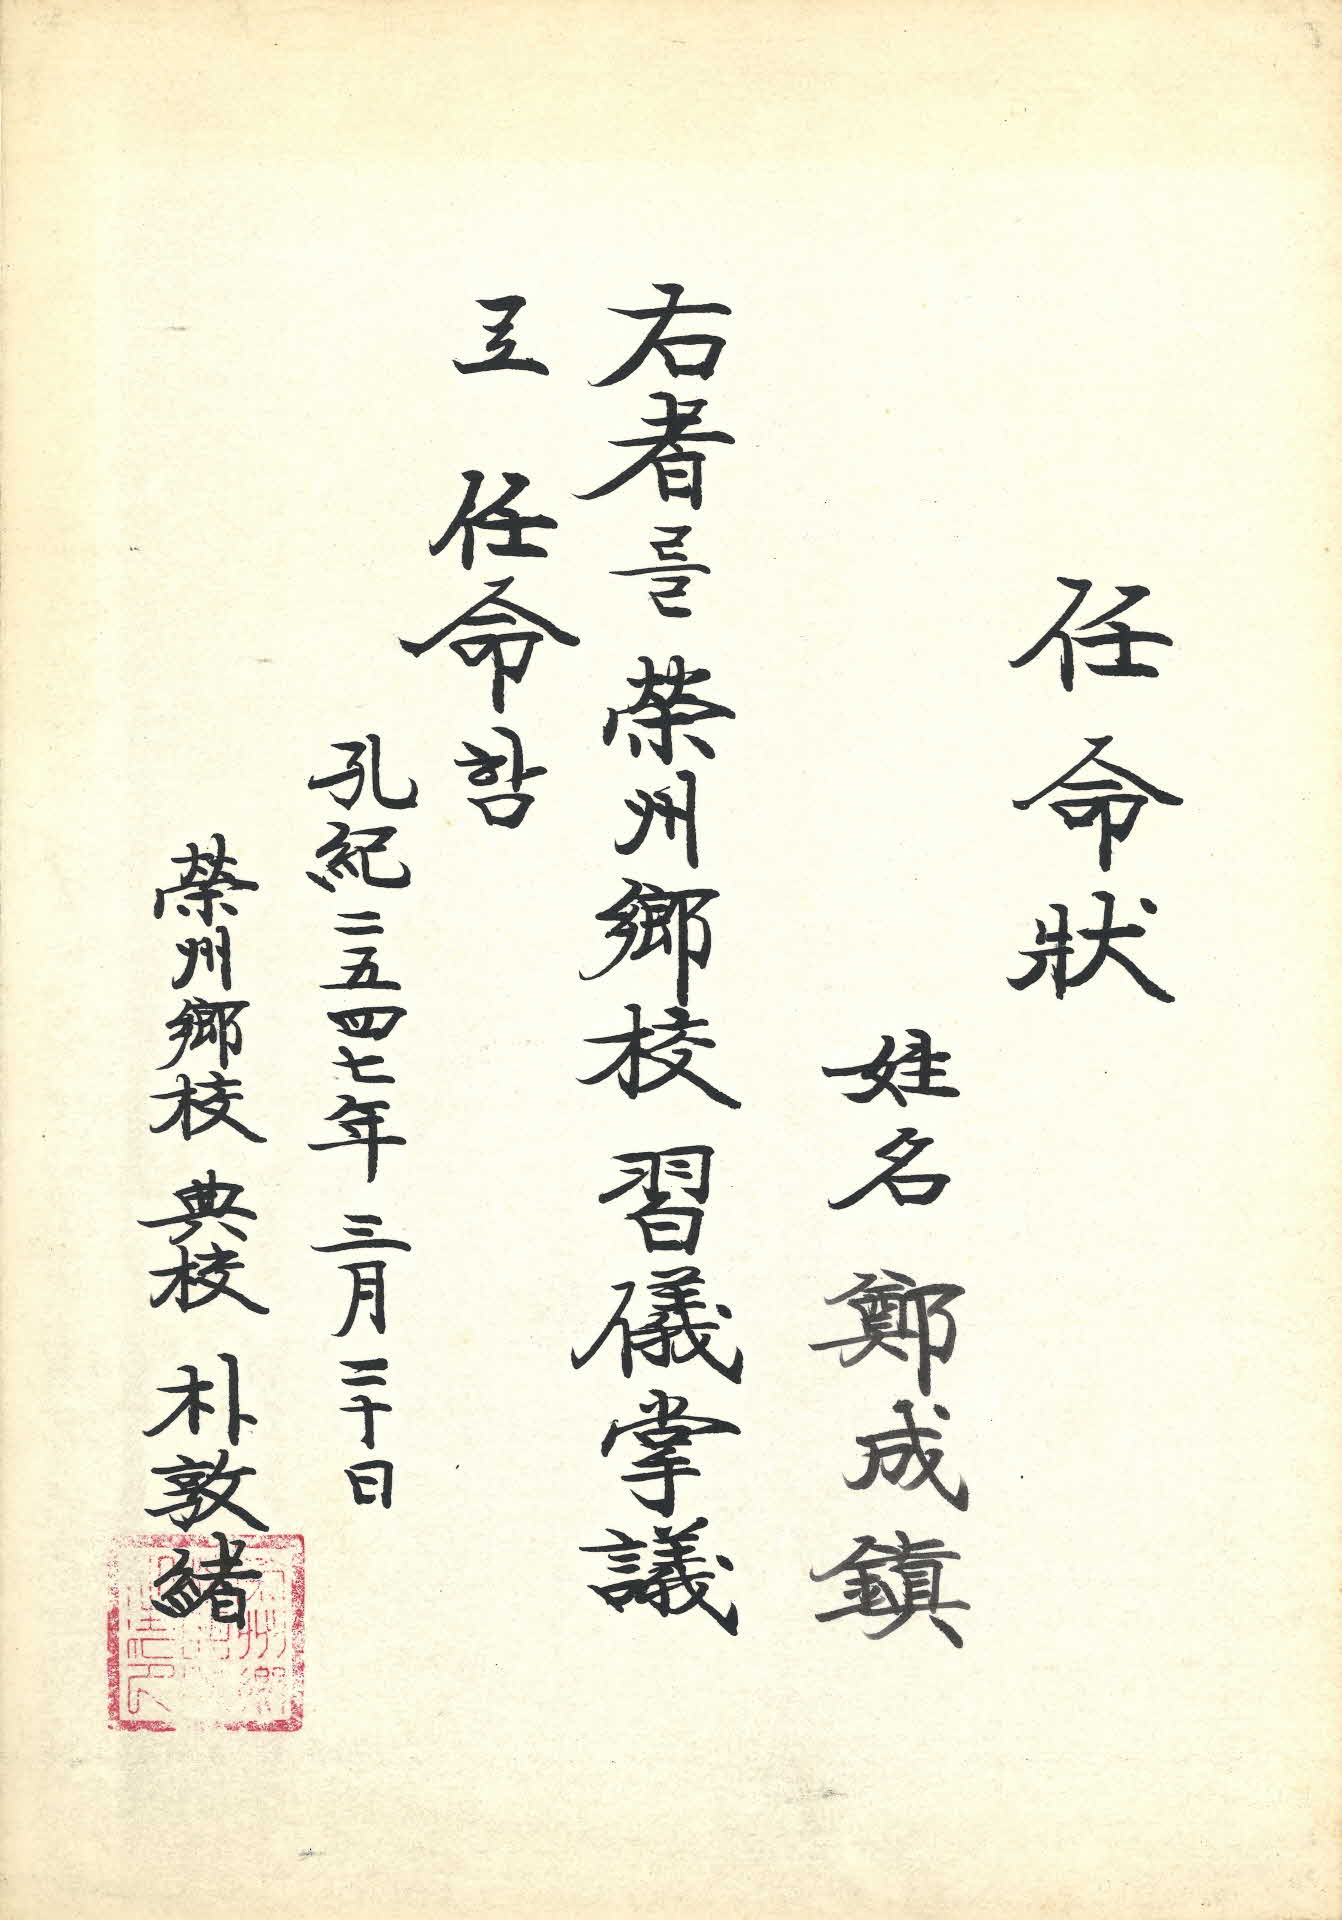 任命狀
姓名 鄭成鎭
右者를 榮州鄕校 習儀掌議
로 任命함
孔紀二五四七年 三月 二十日
榮州鄕校 典校 朴敦緖